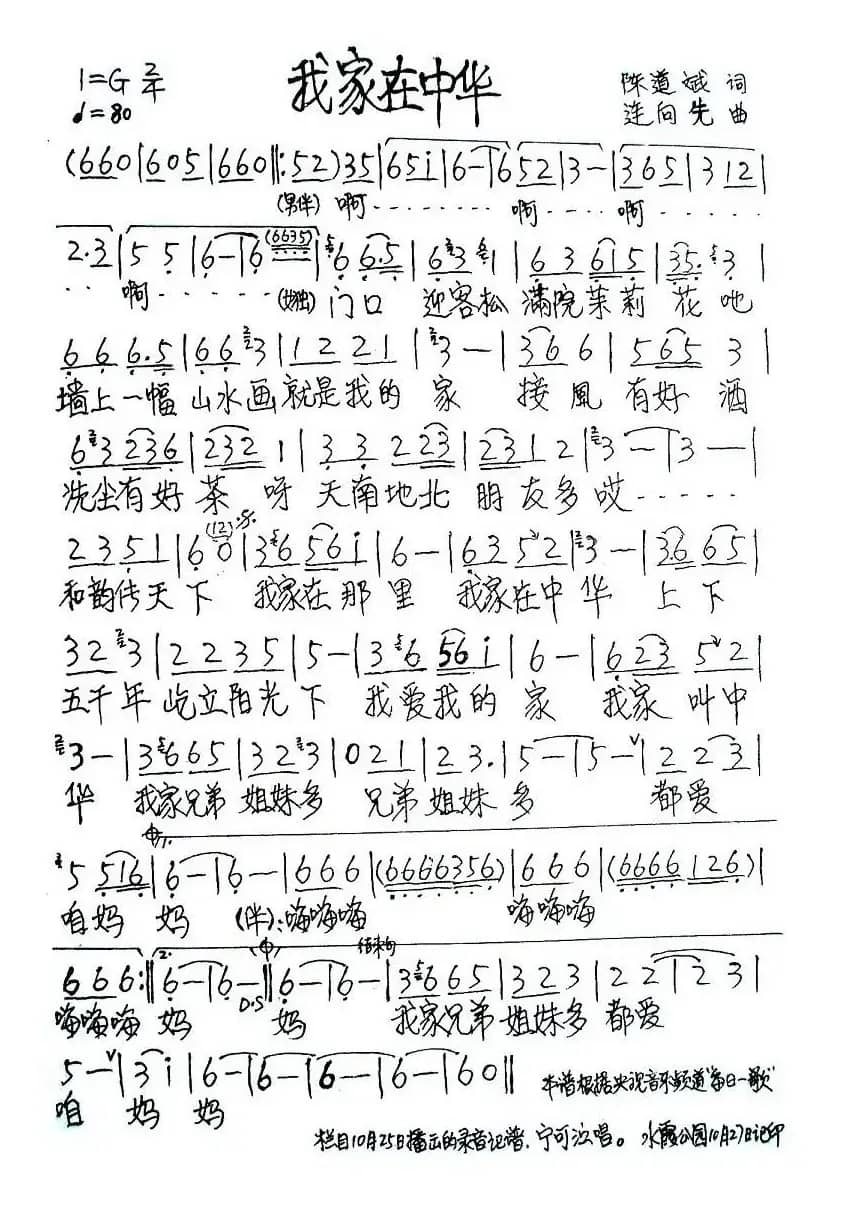 我家在中华
1=G 2/4
♩=80
陈道斌 词
连向先 曲
(660|605|660‖:52)35|65i|6-|652|3-|365|312|
(男伴) 啊 . . . . . . . 啊 . . . . 啊 . . . . .
2·3|55|6-|6(6635)|66·5|63 1|63615|35·3|
. . 啊 . . . . . (女独) 门口 迎客松 满院茉莉 花吔
666·5|663|1221|3-|366|5653|
墙上一幅 山水画 就是我的 家 接風 有好酒
63236|2321|33223|2312|3-|3-|
洗尘有好 茶呀 天南地北 朋友多哎 . . . . .
2351|60(12)|3656i|6-|6352|3-|3665|
和韵传天 下 我家在那 里 我家在中 华 上下
323|2235|5-|3656i|6-|62352|
五千年 屹立阳光 下 我爱我的 家 我家叫中
3-|3665|323|021|23·|5-|5-|223|
华 我家兄弟 姐妹多 兄弟姐妹 多 都爱
5516|6-|6-|666|(6666356)|666|(6666126)|
咱妈 妈 (伴):嗨嗨嗨 嗨嗨嗨
666:‖2.6-|6-‖6-|6-|3665|323|22|23|
结束句
D.S
嗨嗨嗨 妈 妈 我家兄弟 姐妹多 都爱
5-|3i|6-|6-|6-|6-|60‖ 本谱根据央视音乐频道“每日一歌”
咱 妈 妈
栏目10月25日播出的录音记谱.宁可泣唱。 水霞公园10月27日记印